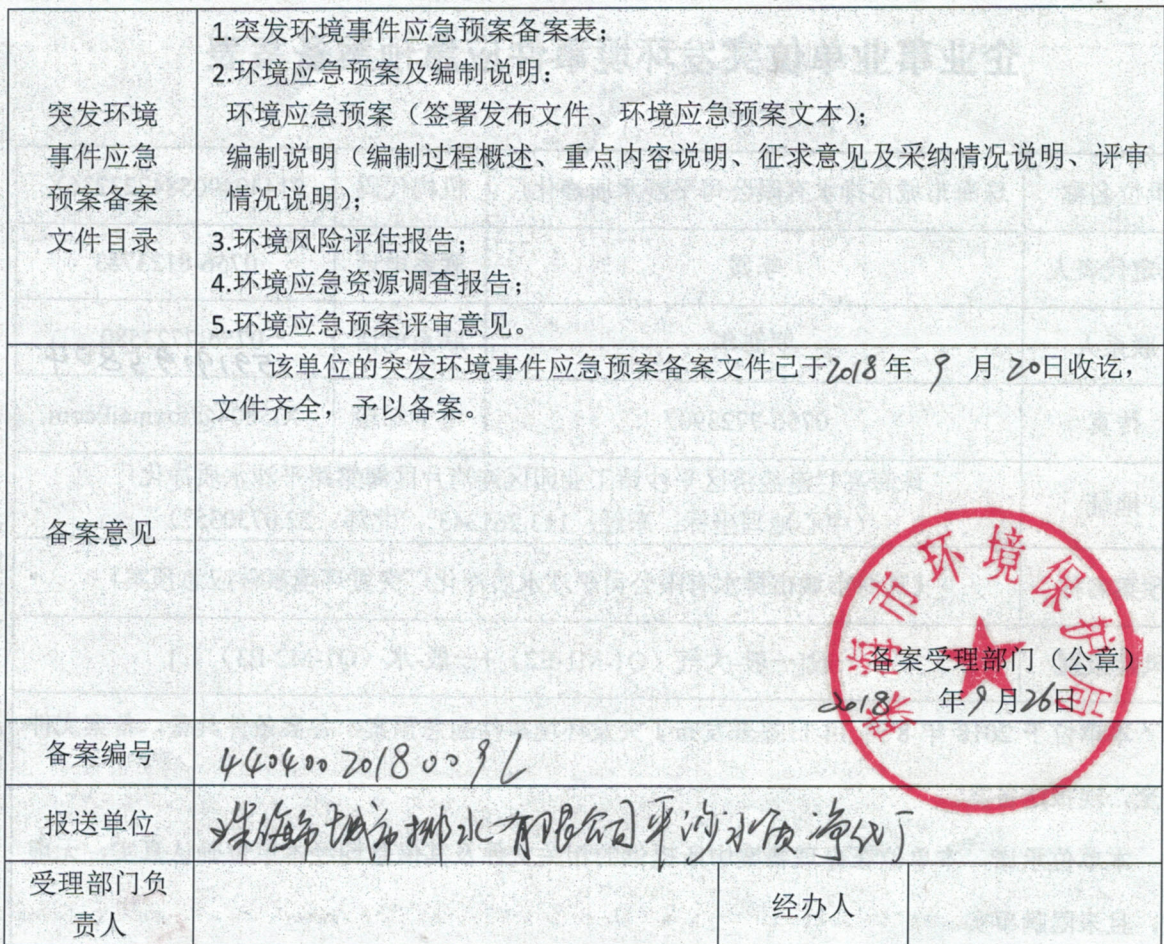 突发环境
事件应急
预案备案
文件目录
1.突发环境事件应急预案备案表；
2.环境应急预案及编制说明：
环境应急预案（签署发布文件、环境应急预案文本）；
编制说明（编制过程概述、重点内容说明、征求意见及采纳情况说明、评审
情况说明）；
3.环境风险评估报告；
4.环境应急资源调查报告；
5.环境应急预案评审意见。
备案意见
该单位的突发环境事件应急预案备案文件已于2018年 9 月 20日收讫，
文件齐全，予以备案。
珠海市环境保护局
备案受理部门（公章）
2018 年9月26日
备案编号
440400 2018 009 L
报送单位
珠海市城市排水有限公司平沙水质净化厂
受理部门负
责人
经办人